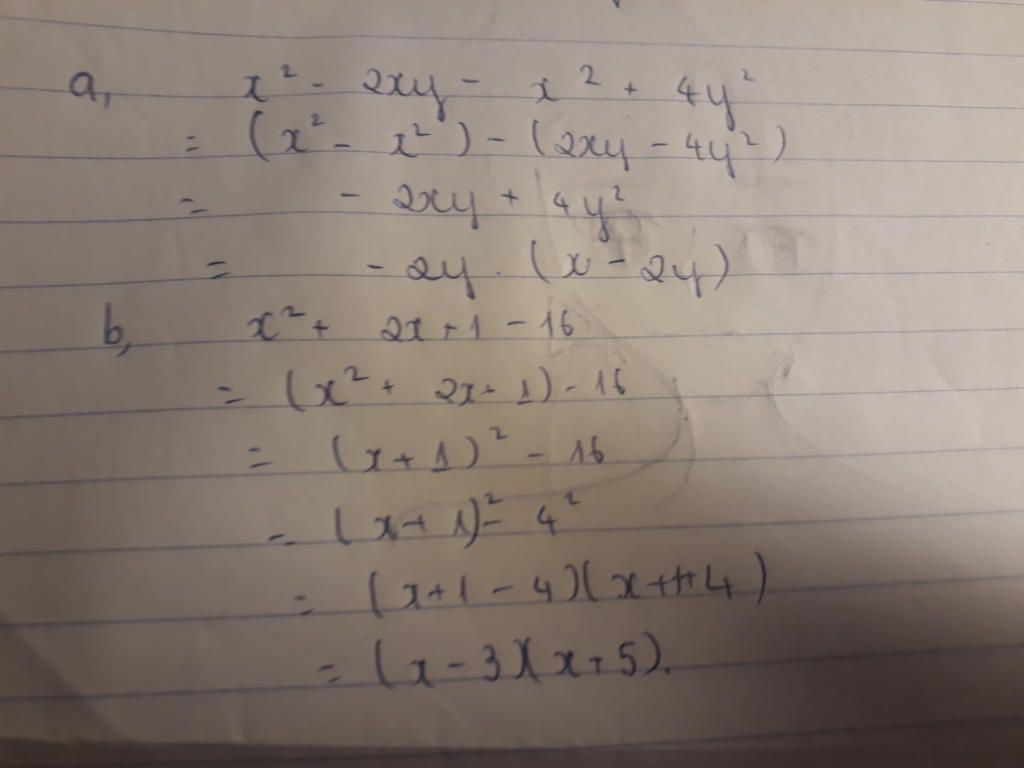 a, x² - 2xy - x² + 4y²
= (x² - x²) - (2xy - 4y²)
= - 2xy + 4y²
= - 2y . (x - 2y)
b, x² + 2x + 1 - 16
= (x² + 2x + 1) - 16
= (x + 1)² - 16
= (x + 1)² - 4²
= (x + 1 - 4)(x + 1 + 4)
= (x - 3)(x + 5).